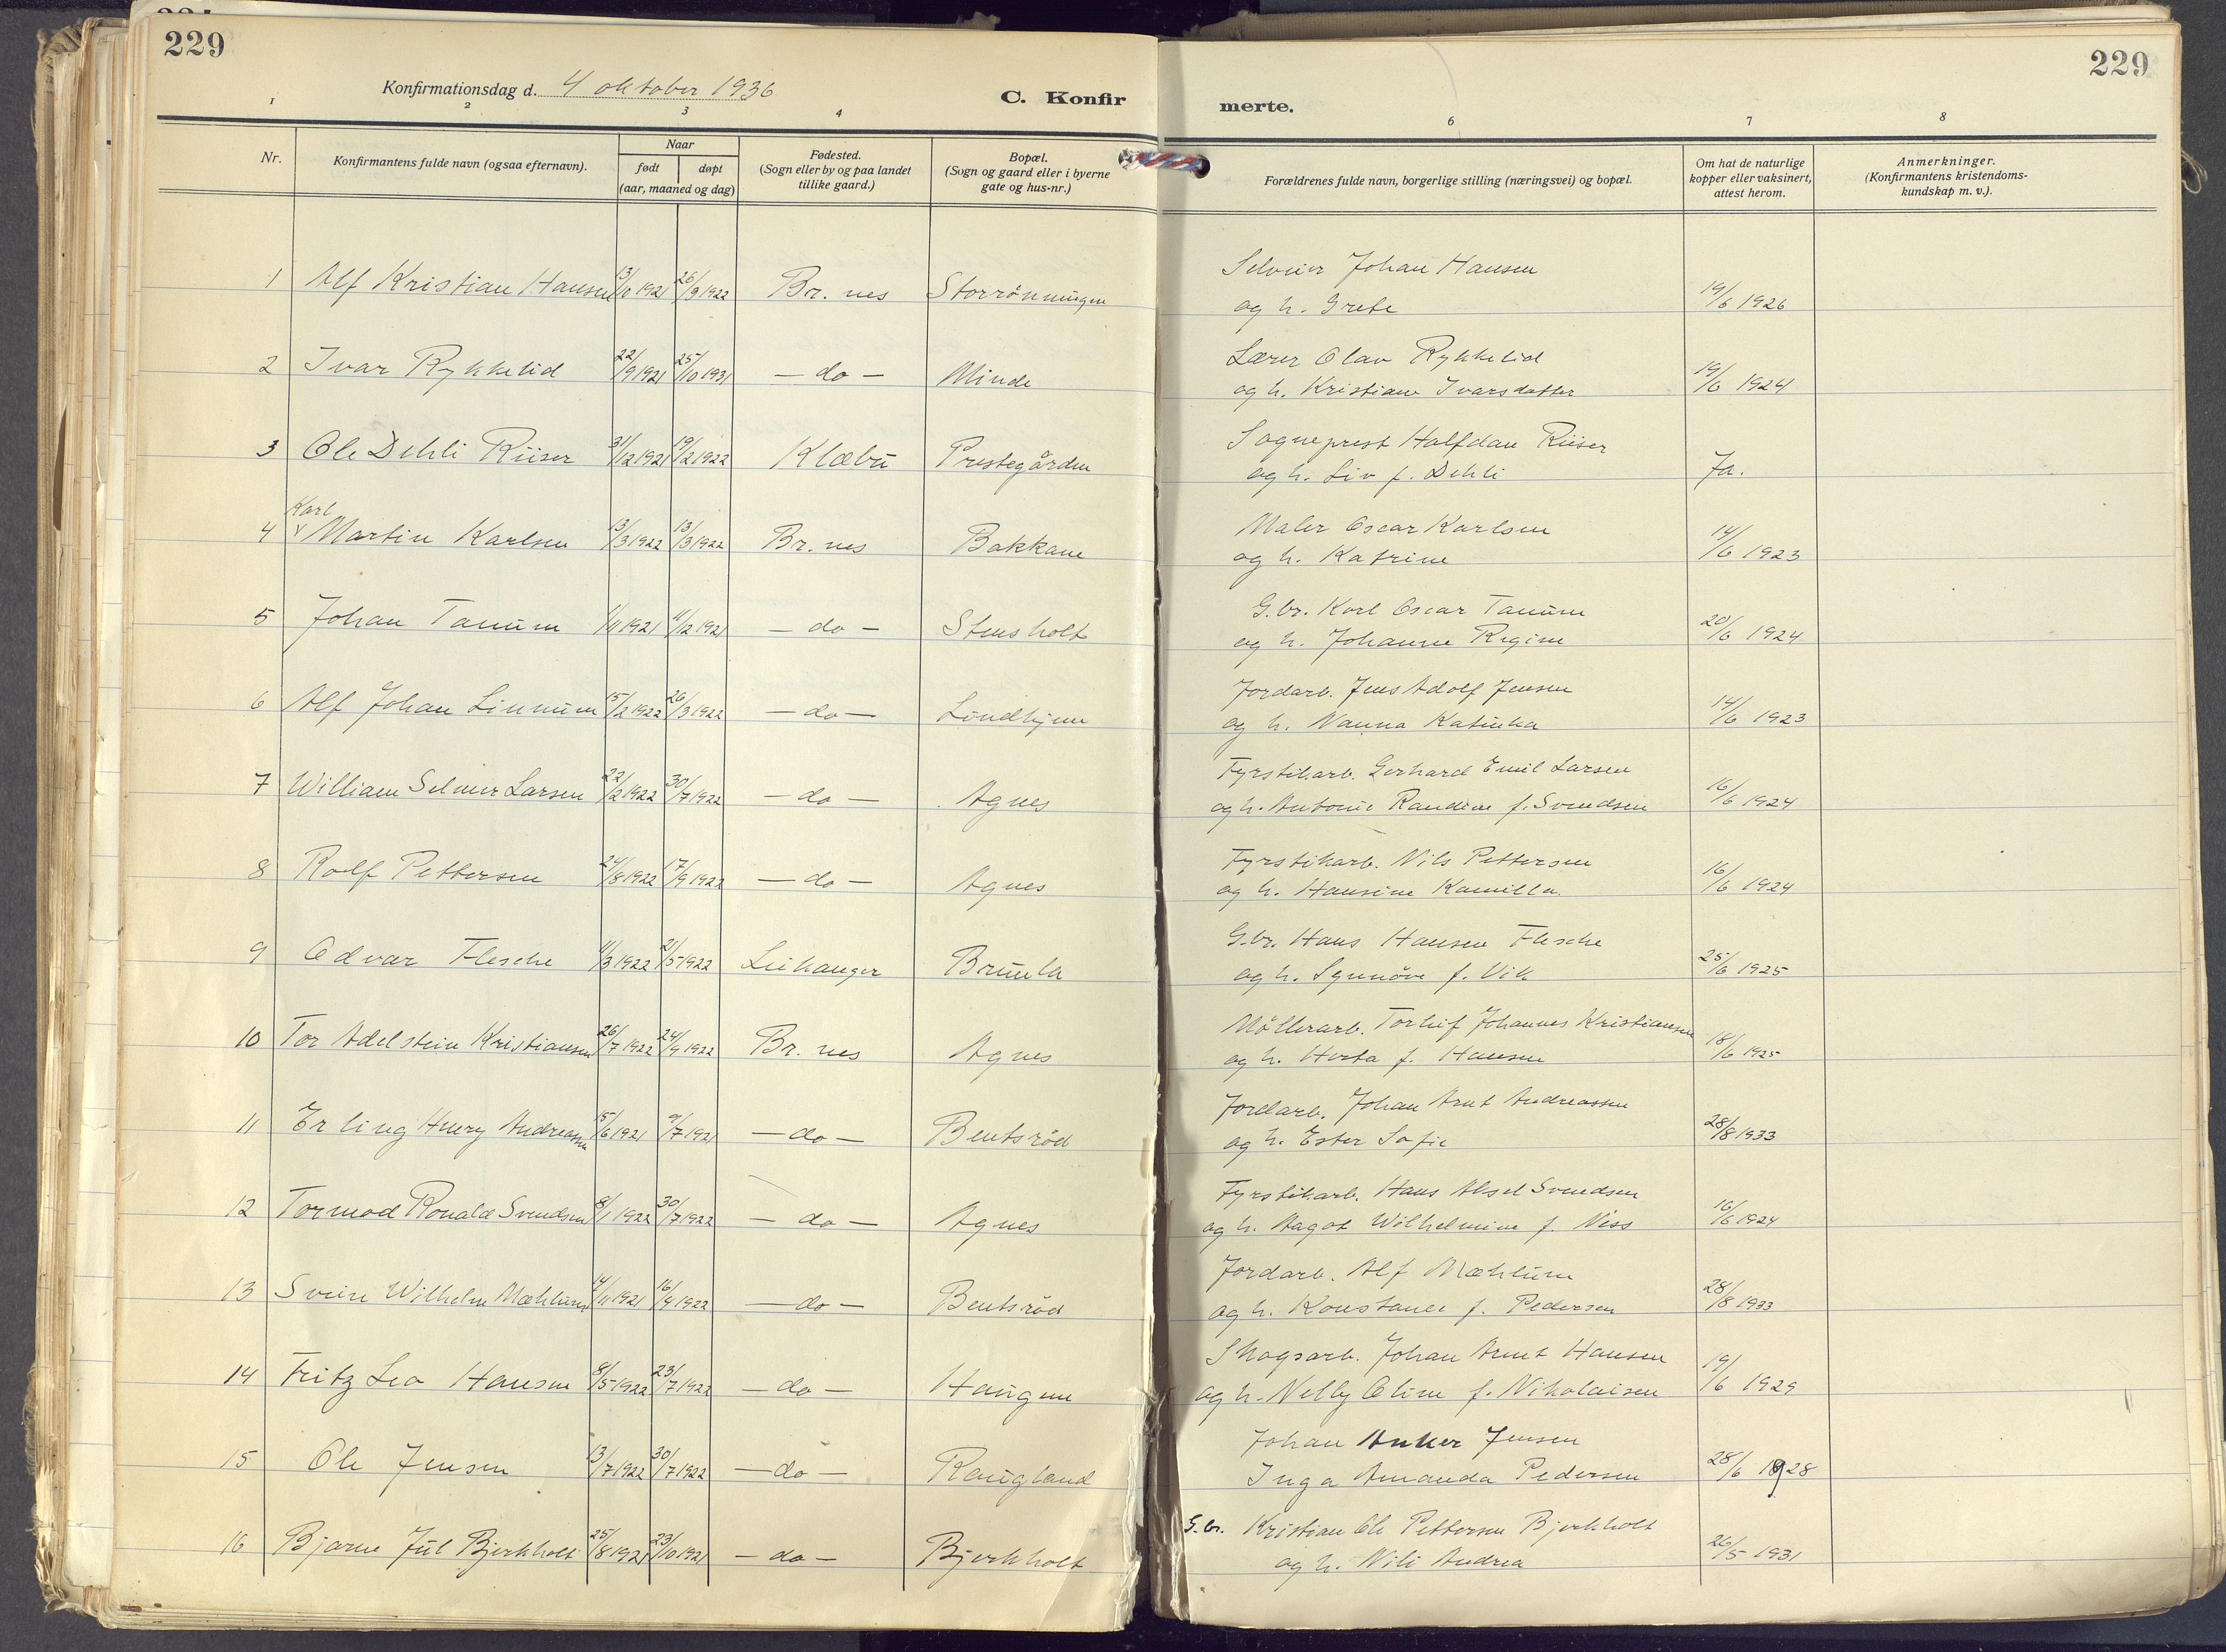 229
229
Konfirmationsdag d. 4 oktober 1936
C. Konfir
merte.
1 2 3 4 6 7 8
Nr.
Konfirmantens fulde navn (ogsaa efternavn).
Naar
født døpt
(aar, maaned og dag)
Fødested.
(Sogn eller by og paa landet
tillike gaard.)
Bopæl.
(Sogn og gaard eller i byerne
gate og hus-nr.)
Forældrenes fulde navn, borgerlige stilling (næringsvei) og bopæl.
Om hat de naturlige
kopper eller vaksinert,
attest herom.
Anmerkninger.
(Konfirmantens kristendoms-
kundskap m. v.).
1 Alf Kristian Hansen 13/10 1921 26/3 1922 Br. nes Storrönningen
Johan Hansen
og h. Grete 19/6 1926
2 Ivar Rykkelid 22/9 1921 25/10 1931 — do — Minde
Lærer Olav Rykkelid
og h. Kristiane Ivarsdatter 19/6 1924
3 Ole Dehli Riiser 31/12 1921 19/2 1922 Klæbu Prestegården
Sogneprest Halfdan Riiser
og h. Liv f. Dehli Ja.
Karl
4 Martin Karlsen 13/3 1922 13/3 1922 Br. nes Bakkane
Maler Oscar Karlsen
og h. Katrine 14/6 1923
5 Johan Tanum 1/11 1921 11/12 1921 — do — Stensholt
G.br. Karl Oscar Tanum
og h. Johanne Regine 20/6 1924
6 Alf Johan Linnum 15/2 1922 26/3 1922 — do — Lindhjem
Jordarb. Jens Adolf Jensen
og h. Nanna Katinka 14/6 1923
7 William Selmer Larsen 22/2 1922 30/7 1922 — do — Agnes
Fyrstikarb. Gerhard Emil Larsen
og h. Antonie Randine f. Svendsen 16/6 1924
8 Rolf Pettersen 24/8 1922 17/9 1922 — do — Agnes
Fyrstikarb. Nils Pettersen
og h. Hansine Kamilla. 16/6 1924
9 Odvar Flesche 11/3 1922 21/5 1922 Leikanger Brunla
G.br. Hans Hansen Flesche
og h. Synnöve f. Vik 25/6 1925
10 Tor Adelstein Kristiansen 26/7 1922 24/9 1922 Br. nes Agnes
Möllerarb. Torleif Johannes Kristiansen
og h. Herta f. Hansen 18/6 1925
11 Erling Henry Andreassen 15/6 1921 9/7 1921 — do — Bentsröd
Jordarb. Johan Arnt Andreassen
og h. Ester Sofie 28/8 1933
12 Tormod Ronald Svendsen 8/1 1922 30/7 1922 — do — Agnes
Fyrstikarb. Hans Aksel Svendsen
og h. Aagot Wilhelmine f. Niss 16/6 1924
13 Svein Wilhelm Mæhlum 14/11 1921 16/4 1922 — do — Bentsröd
Jordarb. Alf Mæhlum
og h. Konstance f. Pedersen 28/8 1933
14 Fritz Leo Hansen 8/5 1922 23/7 1922 — do — Haugen
Skogsarb. Johan Arnt Hansen
og h. Nelly Oline f. Nikolaisen 19/6 1929
15 Ole Jensen 13/7 1922 30/7 1922 — do — Raugland
Johan Anker Jensen
Inga Amanda Pedersen 28/6 1928
16 Bjarne Jul Bjerkholt 25/8 1921 23/10 1921 — do — Bjerkholt
G.br. Kristian Ole Pettersen Bjerkholt
og h. Nili Andrea 26/5 1931